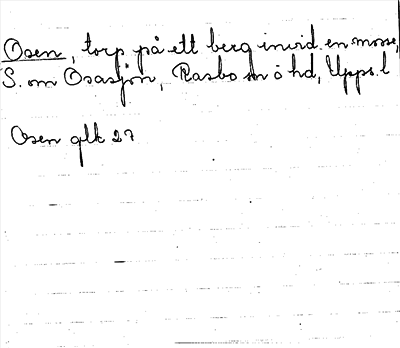 Osen, torp på ett berg invid en mosse,
S. om Osasjön, Rasbo sn o hd, Upps. l
Osen glk 27